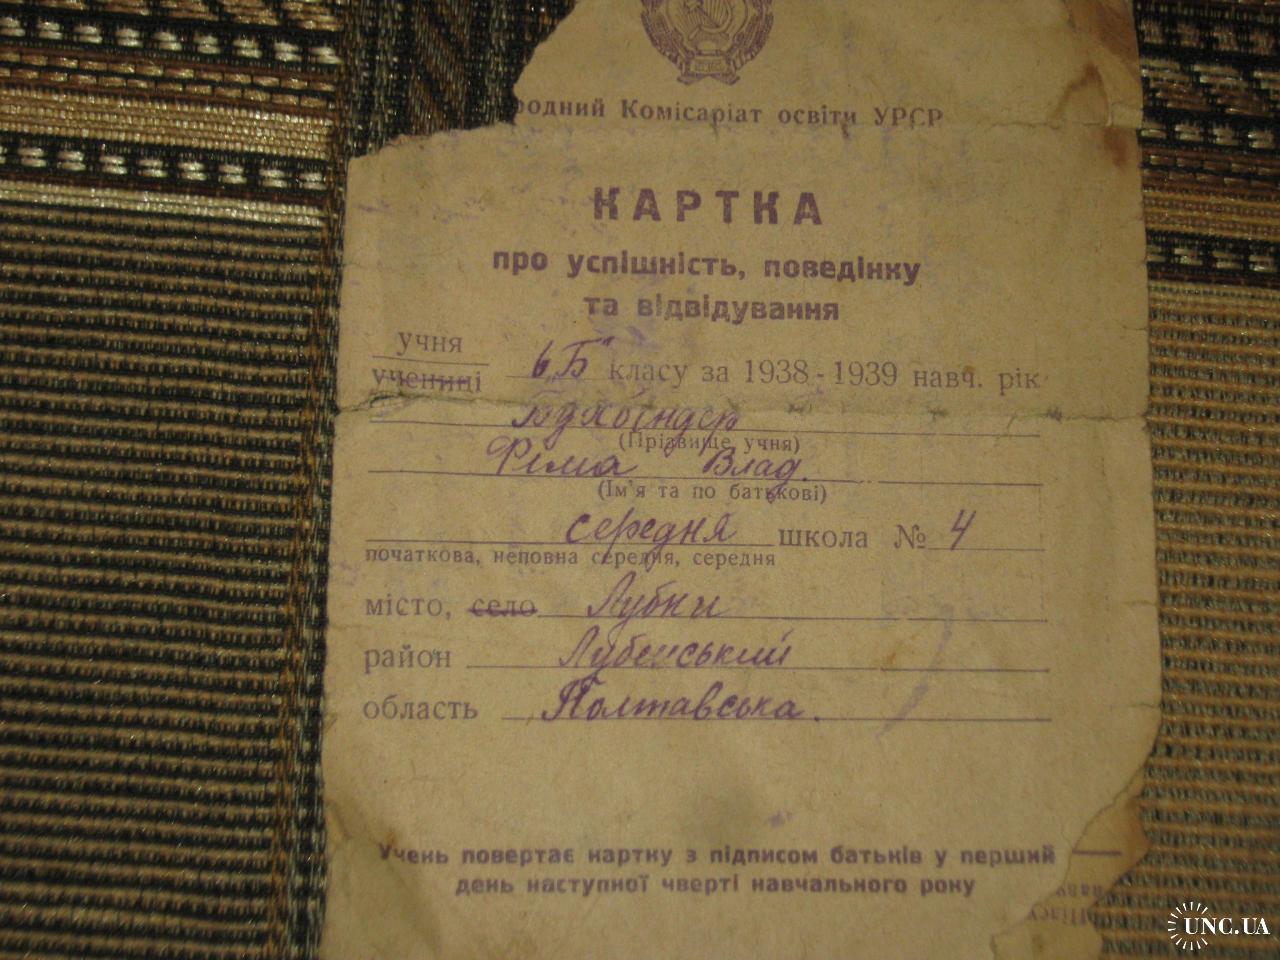 родний Комісаріат освіти УРСР
КАРТКА
про успішність, поведінку
та відвідування
учня
учениці 6 „Б" класу за 1938-1939 навч. рік
Бухбіндер
(Прізвище учня)
Фіма Влад.
(Ім'я та по батькові)
середня школа № 4
початкова, неповна середня, середня
місто, село Лубни
район Лубенський
область Полтавська.
Учень повертає картку з підписом батьків у перший
день наступної чверті навчального року
UNC.UA